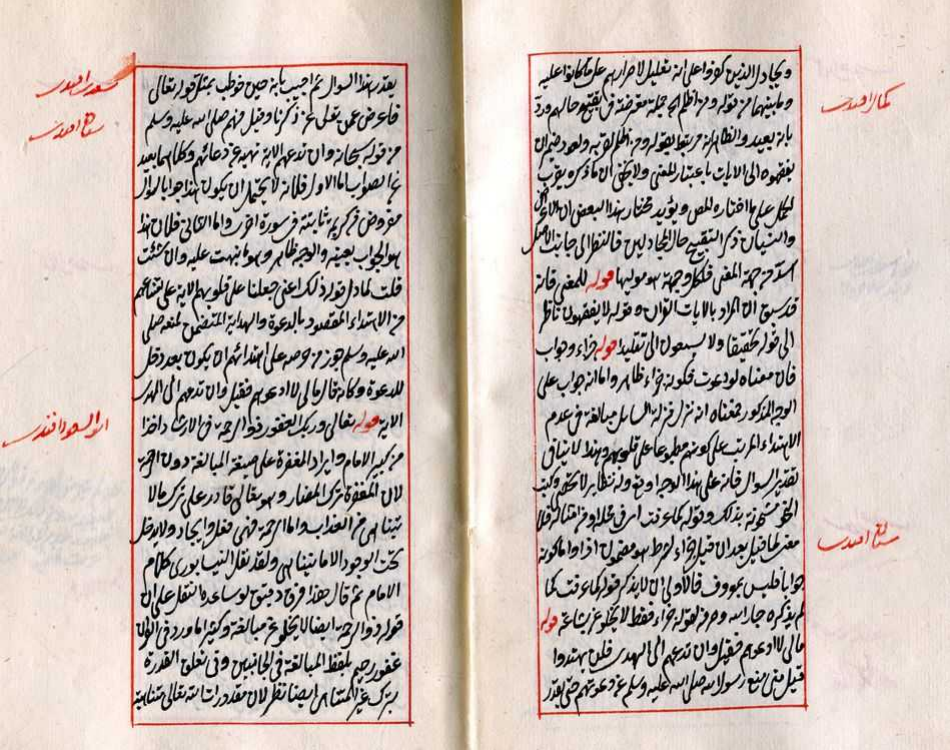 كمال افندى
سنان افندى
ويجادل الذين كفروا على انه تعليل لاصرارهم على ما كانوا عليه
وما بينهما من قوله ومن اظلم الخ جملة معترضة في تقبيح حالهم ورد
بانه بعيد والظاهر انه مرتبط بقوله ومن اظلم لقربه ولعود ضمير ان
يفقهوه الى الايات باعتبار المعنى ولا يخفى ان ما ذكره يقرب
الحمل على ما اختاره المص ويؤيد مختار هذا البعض ان الاعراض
والنسيان ذكر التقبيح حال المجادلين فالنظر الى جانب الاصل
من جهة المعنى فلكل وجهة هو موليها قوله للمعنى فانه
قد سبق ان المراد بالايات القران وقوله لا يفقهون ناظر
الى قوله تحقيقا ولا يسمعون الى تقليدا قوله جزاء وجواب
فان معناه لو دعوت فكونه جزاء ظاهر واما انه جواب على
الوجه المذكور فمعناه انه نزل منزلة السايل مبالغة في عدم
الاهتداء المرتب على كونهم مطبوعا على قلوبهم وهذا لا ينافي
تقدير السوال فانه على هذا الوجه اوقع وله نظاير لا تحصى وكتب
النحو مشحونة بذلك وقوله كما عرفت فلا
معنى لما قيل بعد ان قيل جزاء لشرط هو مضمون اذا واما كونه
جوابا فليس بمعروف فالاولى ان لا يذكر قوله كما عرفت كما
لم يذكره جار الله وصرفه لقوله جزاء فقط لا يخلو عن بشاعة قوله
مالى لا ادعوهم فقيل وان تدعهم الى الهدى فلن يهتدوا
قيل متى منع رسول الله صلى الله عليه وسلم عن دعوتهم حتى يقدر
سعدى افندى
سنان افندى
ابو السعود افندى
بعد هذا السوال ثم اجيب بانه حين خوطب بمثل قوله تعالى
فاعرض عمن تولى عن ذكرنا وقيل فهم صلى الله عليه وسلم
من قوله سبحانه وان تدعهم الاية نهيه عن دعائهم وكلاهما بعيد
عن الصواب اما الاول فلانه لا يحتمل ان يكون هذا جوابا لسوال
مفروض في كريمة ثابتة في سورة اخرى واما الثانى فلان هذا
هو الجواب بعينه والوجه ظاهر وهو ما نبهت عليه وان شئت
قلت لما دل قوله ذلك اعنى جعلنا على قلوبهم الاية على امتناعهم
من الاهتداء المقصود بالدعوة والهداية المتضمن لمنعه صلى
الله عليه وسلم جوز من حرصه على اهتدائهم ان يكون بعد دخل
للدعوة وكانه قال مالى لا ادعوهم فقيل وان تدعهم الى الهدى
الاية قوله تعالى وربك الغفور ذو الرحمة في الارشاد اخذا
من كبير الامام وايراد المغفرة على صيغة المبالغة دون الرحمة
لان المغفرة ترك المضار وهو تعالى قادر على ترك مالا
يتناهى من العذاب واما الرحمة فهى فعل وايجاد ولا يدخل
تحت الوجود الا ما يتناهى ولقد نقل النيسابورى كلام
الامام ثم قال هذا فرق دقيق لو ساعده النقل على ان
قوله ذو الرحمة ايضا لا يخلو عن مبالغة وكثيرا ما ورد في القران
غفور رحيم بلفظ المبالغة في الجانبين وفى تعلق القدرة
بترك غير المتناهى ايضا نظر لان مقدورات الله تعالى متناهية